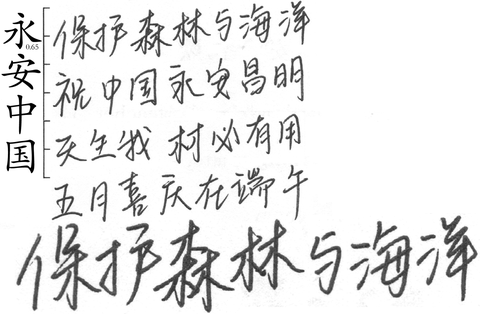 永安中国
0.65
保护森林与海洋
祝中国永安昌明
天生我材必有用
五月喜庆在端午
保护森林与海洋